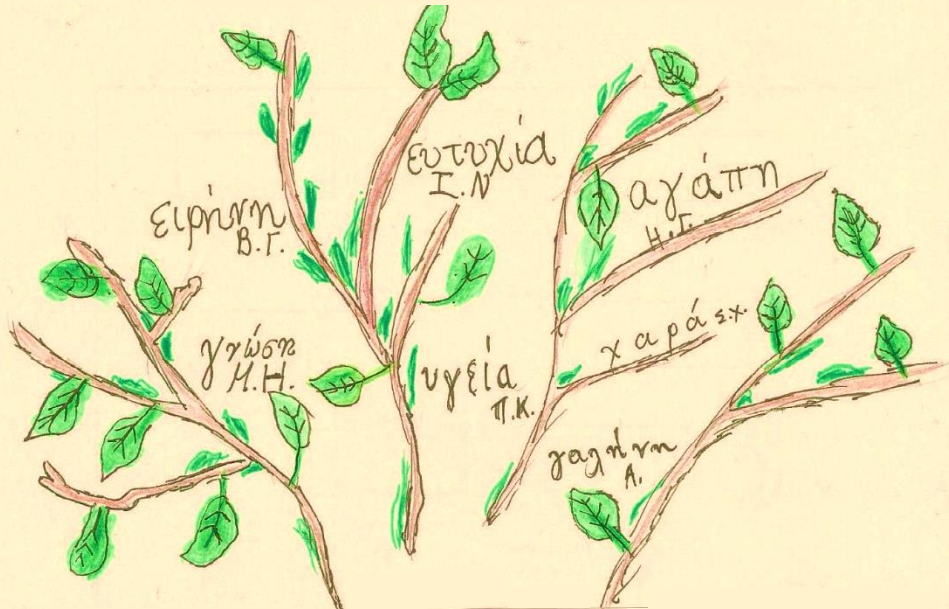 ευτυχία
Ι.Ν
ειρήνη
Β.Γ.
αγάπη
Η.Γ.
γνώση
Μ.Η.
υγεία
Π.Κ.
χαρά Σ.Χ.
γαλήνη
Α.